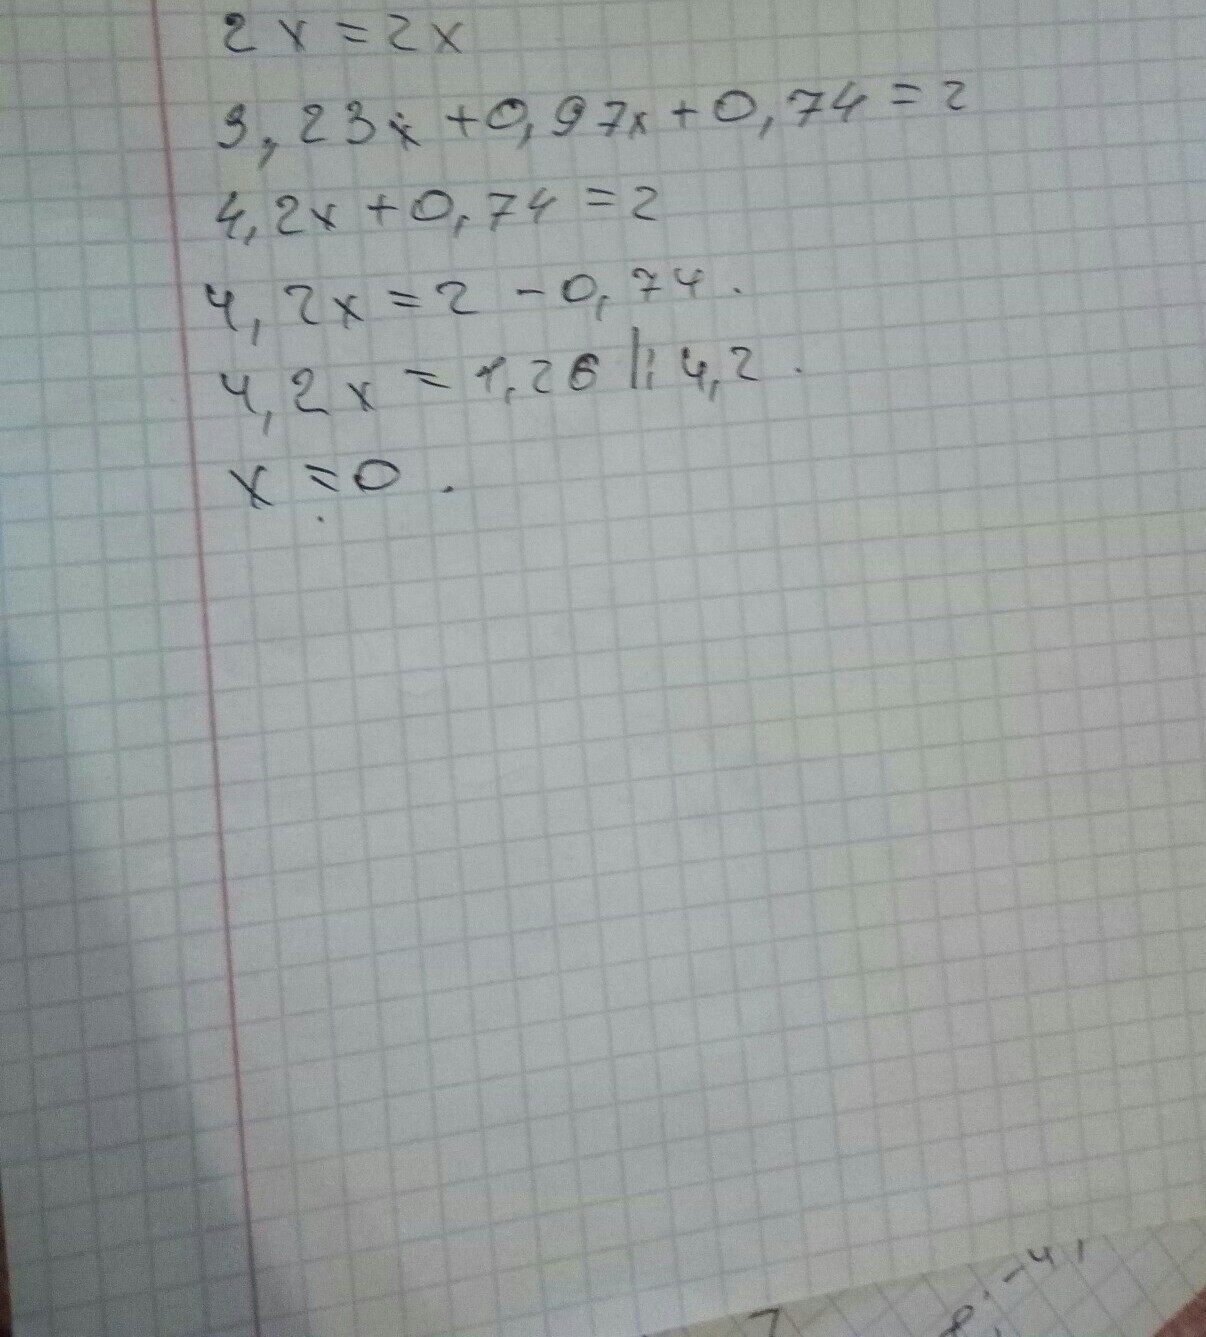 2x=2x
3,23x+0,97x+0,74=2
4,2x+0,74=2
4,2x=2-0,74.
4,2x=1,26|:4,2.
x=0.
-4